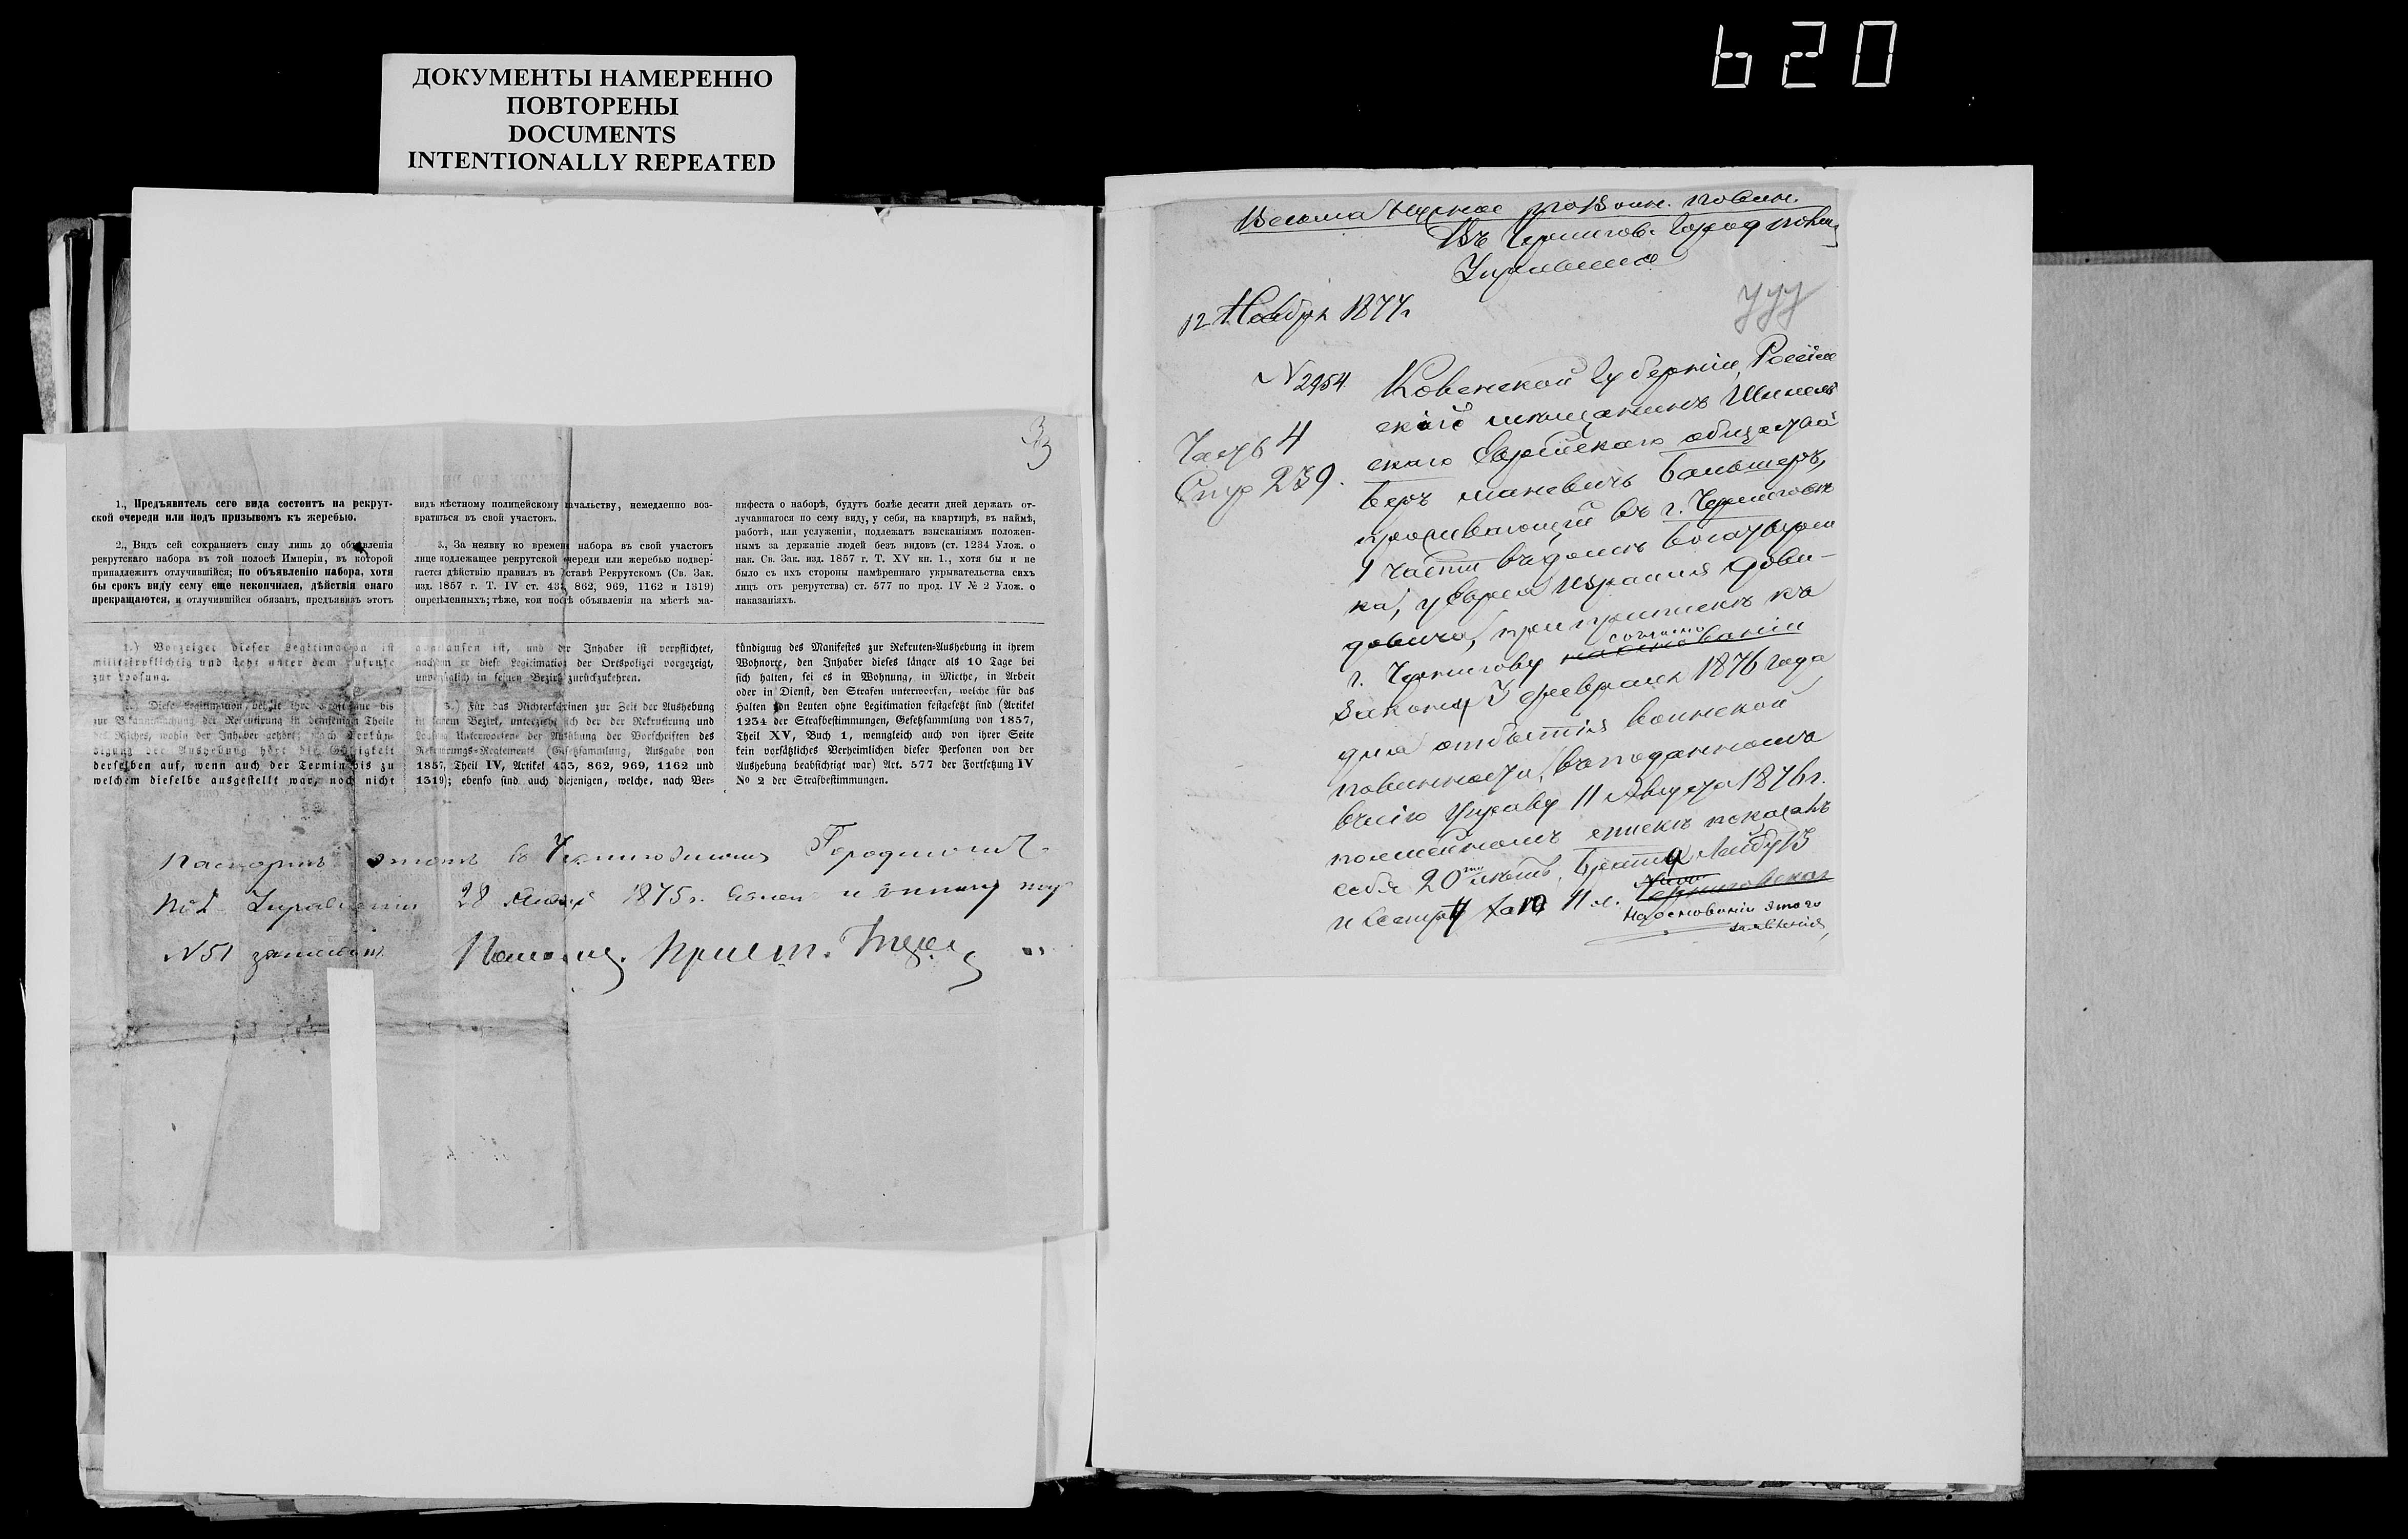 620
ДОКУМЕНТЫ НАМЕРЕННО
ПОВТОРЕНЫ
DOCUMENTS
INTENTIONALLY REPEATED
1., Предъявитель сего вида состоитъ на рекрут-
ской очереди или подъ призывомъ къ жеребью.
2., Видъ сей сохраняетъ силу лишь до объявленія
рекрутскаго набора въ той полосѣ Имперіи, въ которой
принадлежитъ отлучившійся; по объявленію набора, хотя
бы срокъ виду сему еще некончился, дѣйствія онаго
прекращаются, и отлучившійся обязанъ, предъявивъ этотъ
видъ мѣстному полицейскому начальству, немедленно воз-
вратиться въ свой участокъ.
3., За неявку ко времени набора въ свой участокъ
лице подлежащее рекрутской очереди или жеребью подвер-
гается дѣйствію правилъ въ Уставѣ Рекрутскомъ (Св. Зак.
изд. 1857 г. Т. IV ст. 433, 862, 969, 1162 и 1319)
опредѣленныхъ; тѣже, кои послѣ объявленія на мѣстѣ ма-
нифеста о наборѣ, будутъ болѣе десяти дней держать от-
лучавшагося по сему виду, у себя, на квартирѣ, въ наймѣ,
работѣ, или услуженіи, подлежатъ взысканіямъ положен-
нымъ за держаніе людей безъ видовъ (ст. 1234 Улож. о
нак. Св. Зак. изд. 1857 г. Т. XV кн. 1., хотя бы и не
было съ ихъ стороны намѣреннаго укрывательства сихъ
лицъ отъ рекрутства) ст. 577 по прод. IV № 2 Улож. о
наказаніяхъ.
1.) Vorzeiger dieser Legitimation ist
militairpflichtig und steht unter dem Aufrufe
zur Loosung.
2.) Diese Legitimation behält ihre Kraft nur bis
zur Bekanntmachung der Rekrutirung in demjenigen Theile
des Reiches, wohin der Inhaber gehört; nach Verkün-
digung der Aushebung hört die Gültigkeit
derselben auf, wenn auch der Termin bis zu
welchem dieselbe ausgestellt war, noch nicht
abgelaufen ist, und der Inhaber ist verpflichtet,
nachdem er diese Legitimation der Ortspolizei vorgezeigt,
unverzüglich in seinen Bezirk zurückzukehren.
3.) Für das Nichterscheinen zur Zeit der Aushebung
in seinem Bezirk, unterzieht sich der der Rekrutirung und
Loosung Unterworfene der Anwendung der Vorschriften des
Rekrutirungs-Reglements (Gesetzsammlung, Ausgabe von
1857, Theil IV, Artikel 433, 862, 969, 1162 und
1319); ebenso sind auch diejenigen, welche, nach Ver-
kündigung des Manifestes zur Rekruten-Aushebung in ihrem
Wohnorte, den Inhaber dieses länger als 10 Tage bei
sich halten, sei es in Wohnung, in Miethe, in Arbeit
oder in Dienst, den Strafen unterworfen, welche für das
Halten von Leuten ohne Legitimation festgesetzt sind (Artikel
1234 der Strafbestimmungen, Gesetzsammlung von 1857,
Theil XV, Buch 1, wenngleich auch von ihrer Seite
kein vorsätzliches Verheimlichen dieser Personen von der
Aushebung beabsichtigt war) Art. 577 der Fortsetzung IV
№ 2 der Strafbestimmungen.
Паспортъ этотъ въ Черниговскомъ Городскомъ
Управленіи 28 1875 г. и
N 51
Весьма Нужное по Воин. повин.
Въ Чернигов. Город
Управленіе
12 Ноября 1877г
N 2954
Часть 4
Стр 239.
Ковенской Губерніи, Россіен
скій мѣщанинъ Шилель
скаго Еврейскаго общества
Беръ
проживающій въ г. Черниговѣ
1 части въ домѣ
ка, у еврея Израиля Дови-
довича, при припискѣ къ
г. Чернигову согласно
закона 3 февраля 1876 года
для отбытія воинской
повинности, въ поданномъ
въ сію Управу 11 Августа 1876г.
посемейномъ спискѣ показалъ
себя 20ти лѣтъ, брата
и сестру 11 л. Черниговская
На основаніи этого
заявленія,